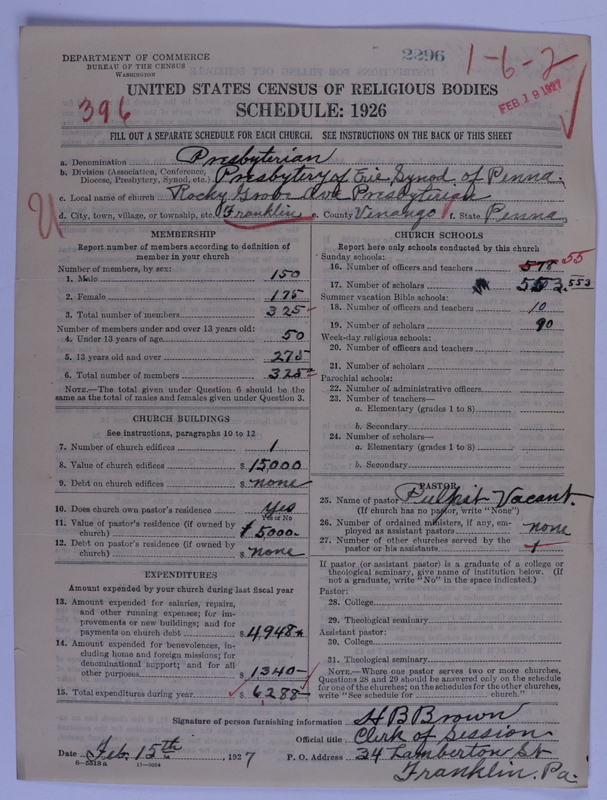 DEPARTMENT OF COMMERCE
BUREAU OF THE CENSUS
WASHINGTON
2296
1-6-2
FEB 19 1927
396
UNITED STATES CENSUS OF RELIGIOUS BODIES
SCHEDULE: 1926
FILL OUT A SEPARATE SCHEDULE FOR EACH CHURCH. SEE INSTRUCTIONS ON THE BACK OF THIS SHEET
a. Denomination Presbyterian
b. Division (Association, Conference, Diocese, Presbytery, Synod, etc.) Presbytery of Erie, Synod of Penna.
c. Local name of church Rocky Grove Ave Presbyterian
d. City, town, village, or township, etc. Franklin e. County Vinango f. State Penna,
MEMBERSHIP
Report number of members according to definition of
member in your church
Number of members, by sex:
1. Male 150
2. Female 175
3. Total number of members 325
Number of members under and over 13 years old:
4. Under 13 years of age 50
5. 13 years old and over 275
6. Total number of members 325
NOTE.—The total given under Question 6 should be
same as the total of males and females given under Question 3.
CHURCH BUILDINGS
See instructions, paragraphs 10 to 12
7. Number of church edifices 1
8. Value of church edifices $ 15,000
9. Debt on church edifices $ none
10. Does church own pastor's residence Yes
Yes or No
11. Value of pastor's residence (if owned by
church) $ 5000-
12. Debt on pastor's residence (if owned by
church) $ none
EXPENDITURES
Amount expended by your church during last fiscal year
13. Amount expended for salaries, repairs,
and other running expenses; for im-
provements or new buildings; and for
payments on church debt $ 4948
14. Amount expended for benevolences, in-
cluding home and foreign missions; for
denominational support; and for all
other purposes $ 1340-
15. Total expenditures during year $ 6288-
CHURCH SCHOOLS
Report here only schools conducted by this church
Sunday schools:
16. Number of officers and teachers 575 55
17. Number of scholars 553. 553
Summer vacation Bible schools:
18. Number of officers and teachers 10
19. Number of scholars 90
Week-day religious schools:
20. Number of officers and teachers
21. Number of scholars
Parochial schools:
22. Number of administrative officers
23. Number of teachers—
a. Elementary (grades 1 to 8)
b. Secondary
24. Number of scholars—
a. Elementary (grades 1 to 8)
b. Secondary
PASTOR
25. Name of pastor Pulpit Vacant.
(If church has no pastor, write "None")
26. Number of ordained ministers, if any, em-
ployed as assistant pastors none
27. Number of other churches served by the
pastor or his assistants 1
If pastor (or assistant pastor) is a graduate of a college or
theological seminary, give name of institution below. (If
not a graduate, write "No" in the space indicated.)
Pastor:
28. College
29. Theological seminary
Assistant pastor:
30. College
31. Theological seminary
NOTE.—Where one pastor serves two or more churches,
Questions 28 and 29 should be answered only on the schedule
for one of the churches; on the schedules for the other churches,
write "See schedule for church."
Signature of person furnishing information H B Brown
Official title Clerk of Session
Date Feb. 15th, 1927 P. O. Address 34 Lamberton St
Franklin, Pa.
8-5518a 11-9084